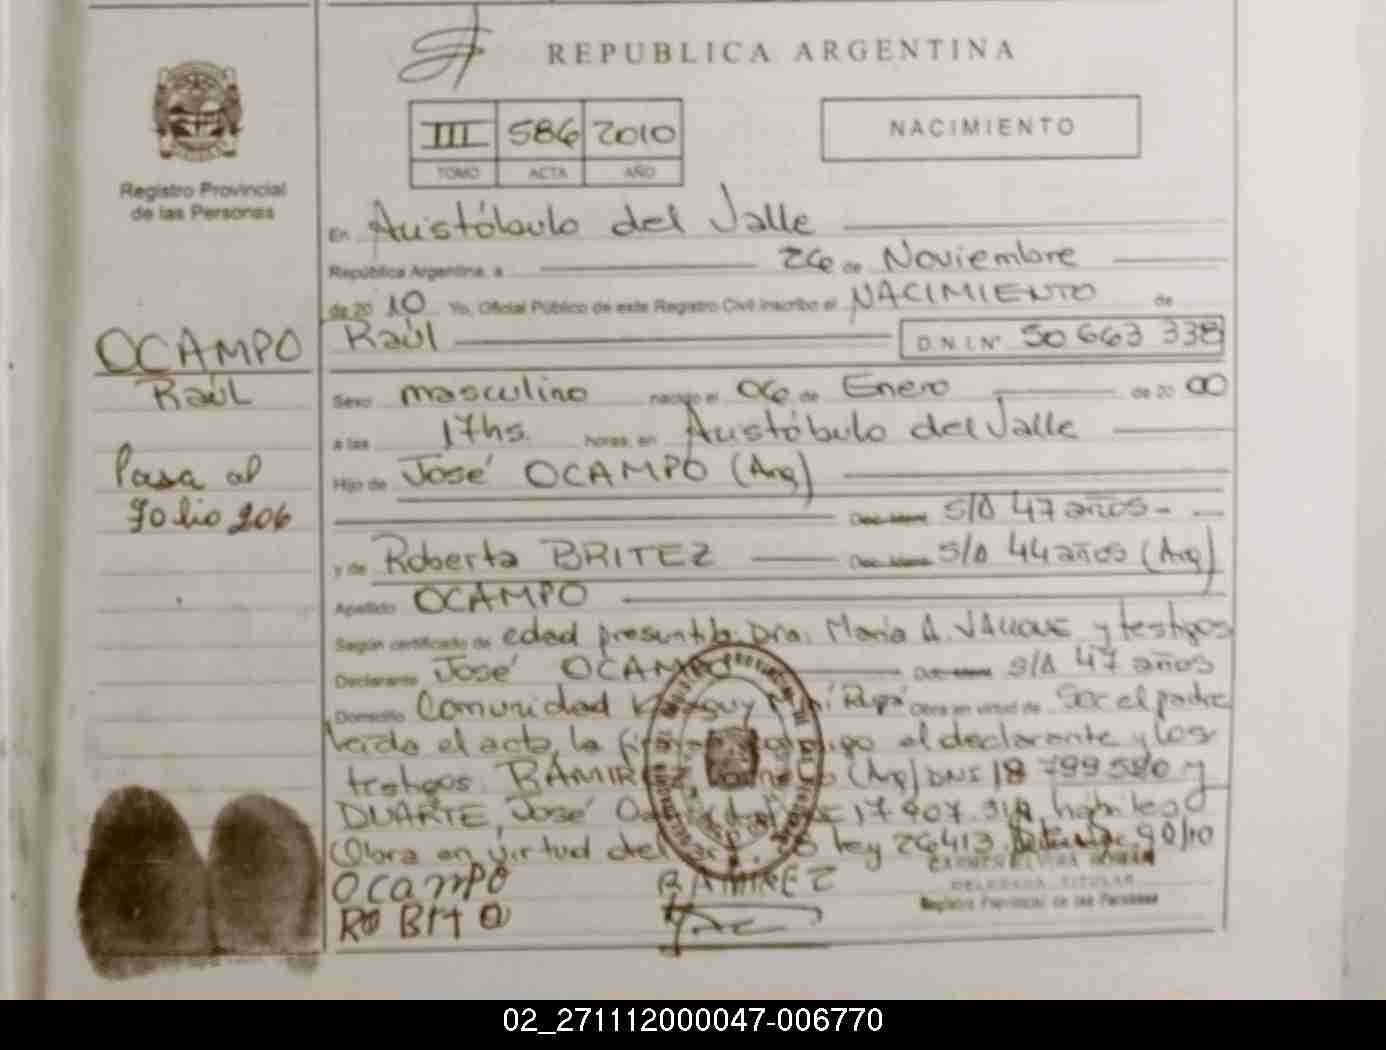 REPUBLICA ARGENTINA
III 586 2010
TOMO ACTA AÑO
NACIMIENTO
Registro Provincial
de las Personas
En Aristóbulo del Valle
República Argentina, a 26 de Noviembre
de 20 10 Yo, Oficial Público de este Registro Civil inscribo el NACIMIENTO de
Raúl D.N.I. Nº 50 663 338
OCAMPO
Raúl
Pasa al
folio 206
Sexo masculino nacido el 06 de Enero de 20 00
a las 17hs. horas, en Aristóbulo del Valle
Hijo de José OCAMPO (Arg)
S/D 47 años
y de Roberta BRITEZ S/D 44 años (Arg)
Apellido OCAMPO
Según certificado de edad presuntiva Dra. María A. y testigos
Declarante José OCAMPO S/D 47 años
Domicilio Comunidad Obra en virtud de Ser el padre
leida el acta, la firma el declarante y los
testigos RAMIREZ (Arg) DNI 18 799 580 y
DUARTE, José 17 907 hábiles
Obra en virtud del ley 26413 90/10
OCAMPO RAMIREZ
ROBITO
DELEGADA TITULAR
Registro Provincial de las Personas
02_271112000047-006770